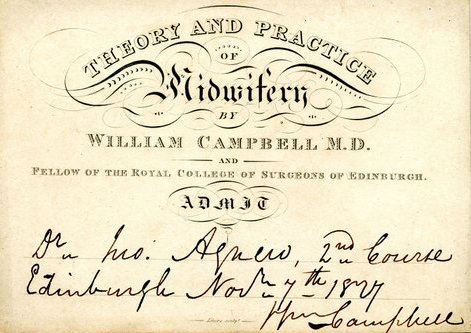 THEORY AND PRACTICE
OF
Midwifery
BY
WILLIAM CAMPBELL M.D.
AND
FELLOW OF THE ROYAL COLLEGE OF SURGEONS OF EDINBURGH.
ADMIT
Dr. Jno. Agnew, 2nd Course
Edinburgh Novr. 7th 1827
Wm Campbell